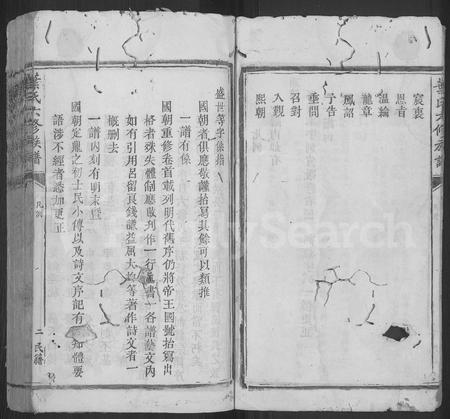 葉氏六修族譜
宸衷
恩眷
溫綸
龍章
鳳詔
予告
垂問
召對
入覲
熙朝
盛世等字係指
國朝者俱應敬謹抬寫其餘可以類推
一譜有係
國朝重修卷首載列明代舊序仍將帝王國號抬寫出
格者殊失體制應改刋作一行書一各譜藝文內
如有引用呂留良錢謙益屈大均等著作詩文者一
概刪去
一譜內刻有明末曁
國朝定鼎之初士民小傳以及詩文序記有知體要
語涉不經者悉加更正
葉氏六修族譜
凡例
二
氏籍
FamilySearch